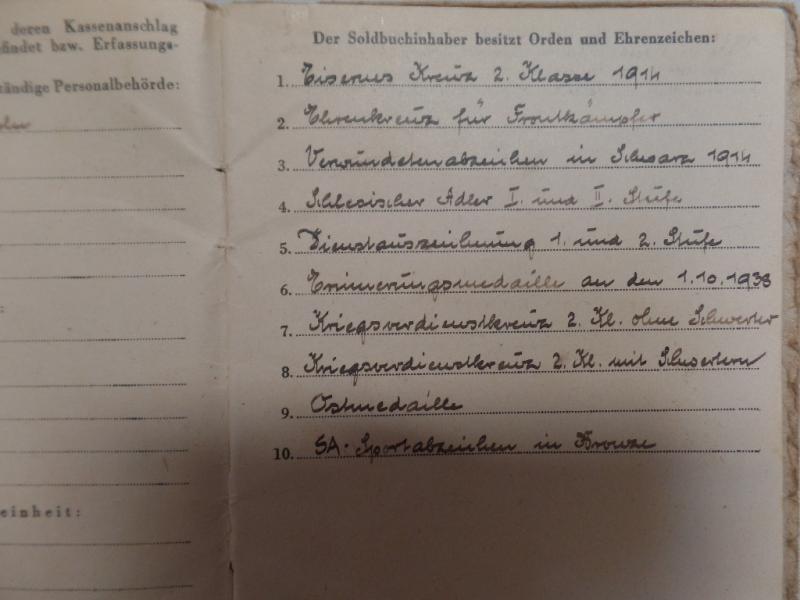 deren Kassenanschlag
findet bzw. Erfassungs-
ständige Personalbehörde:
:
einheit:
Der Soldbuchinhaber besitzt Orden und Ehrenzeichen:
1. Eisernes Kreuz 2. Klasse 1914
2. Ehrenkreuz für Frontkämpfer
3. Verwundetenabzeichen in Schwarz 1914
4. Schlesischer Adler I. und II. Stufe
5. Dienstauszeichnung 1. und 2. Stufe
6. Erinnerungsmedaille an den 1.10.1938
7. Kriegsverdienstkreuz 2. Kl. ohne Schwerter
8. Kriegsverdienstkreuz 2. Kl. mit Schwertern
9. Ostmedaille
10. SA. Sportabzeichen in Bronze